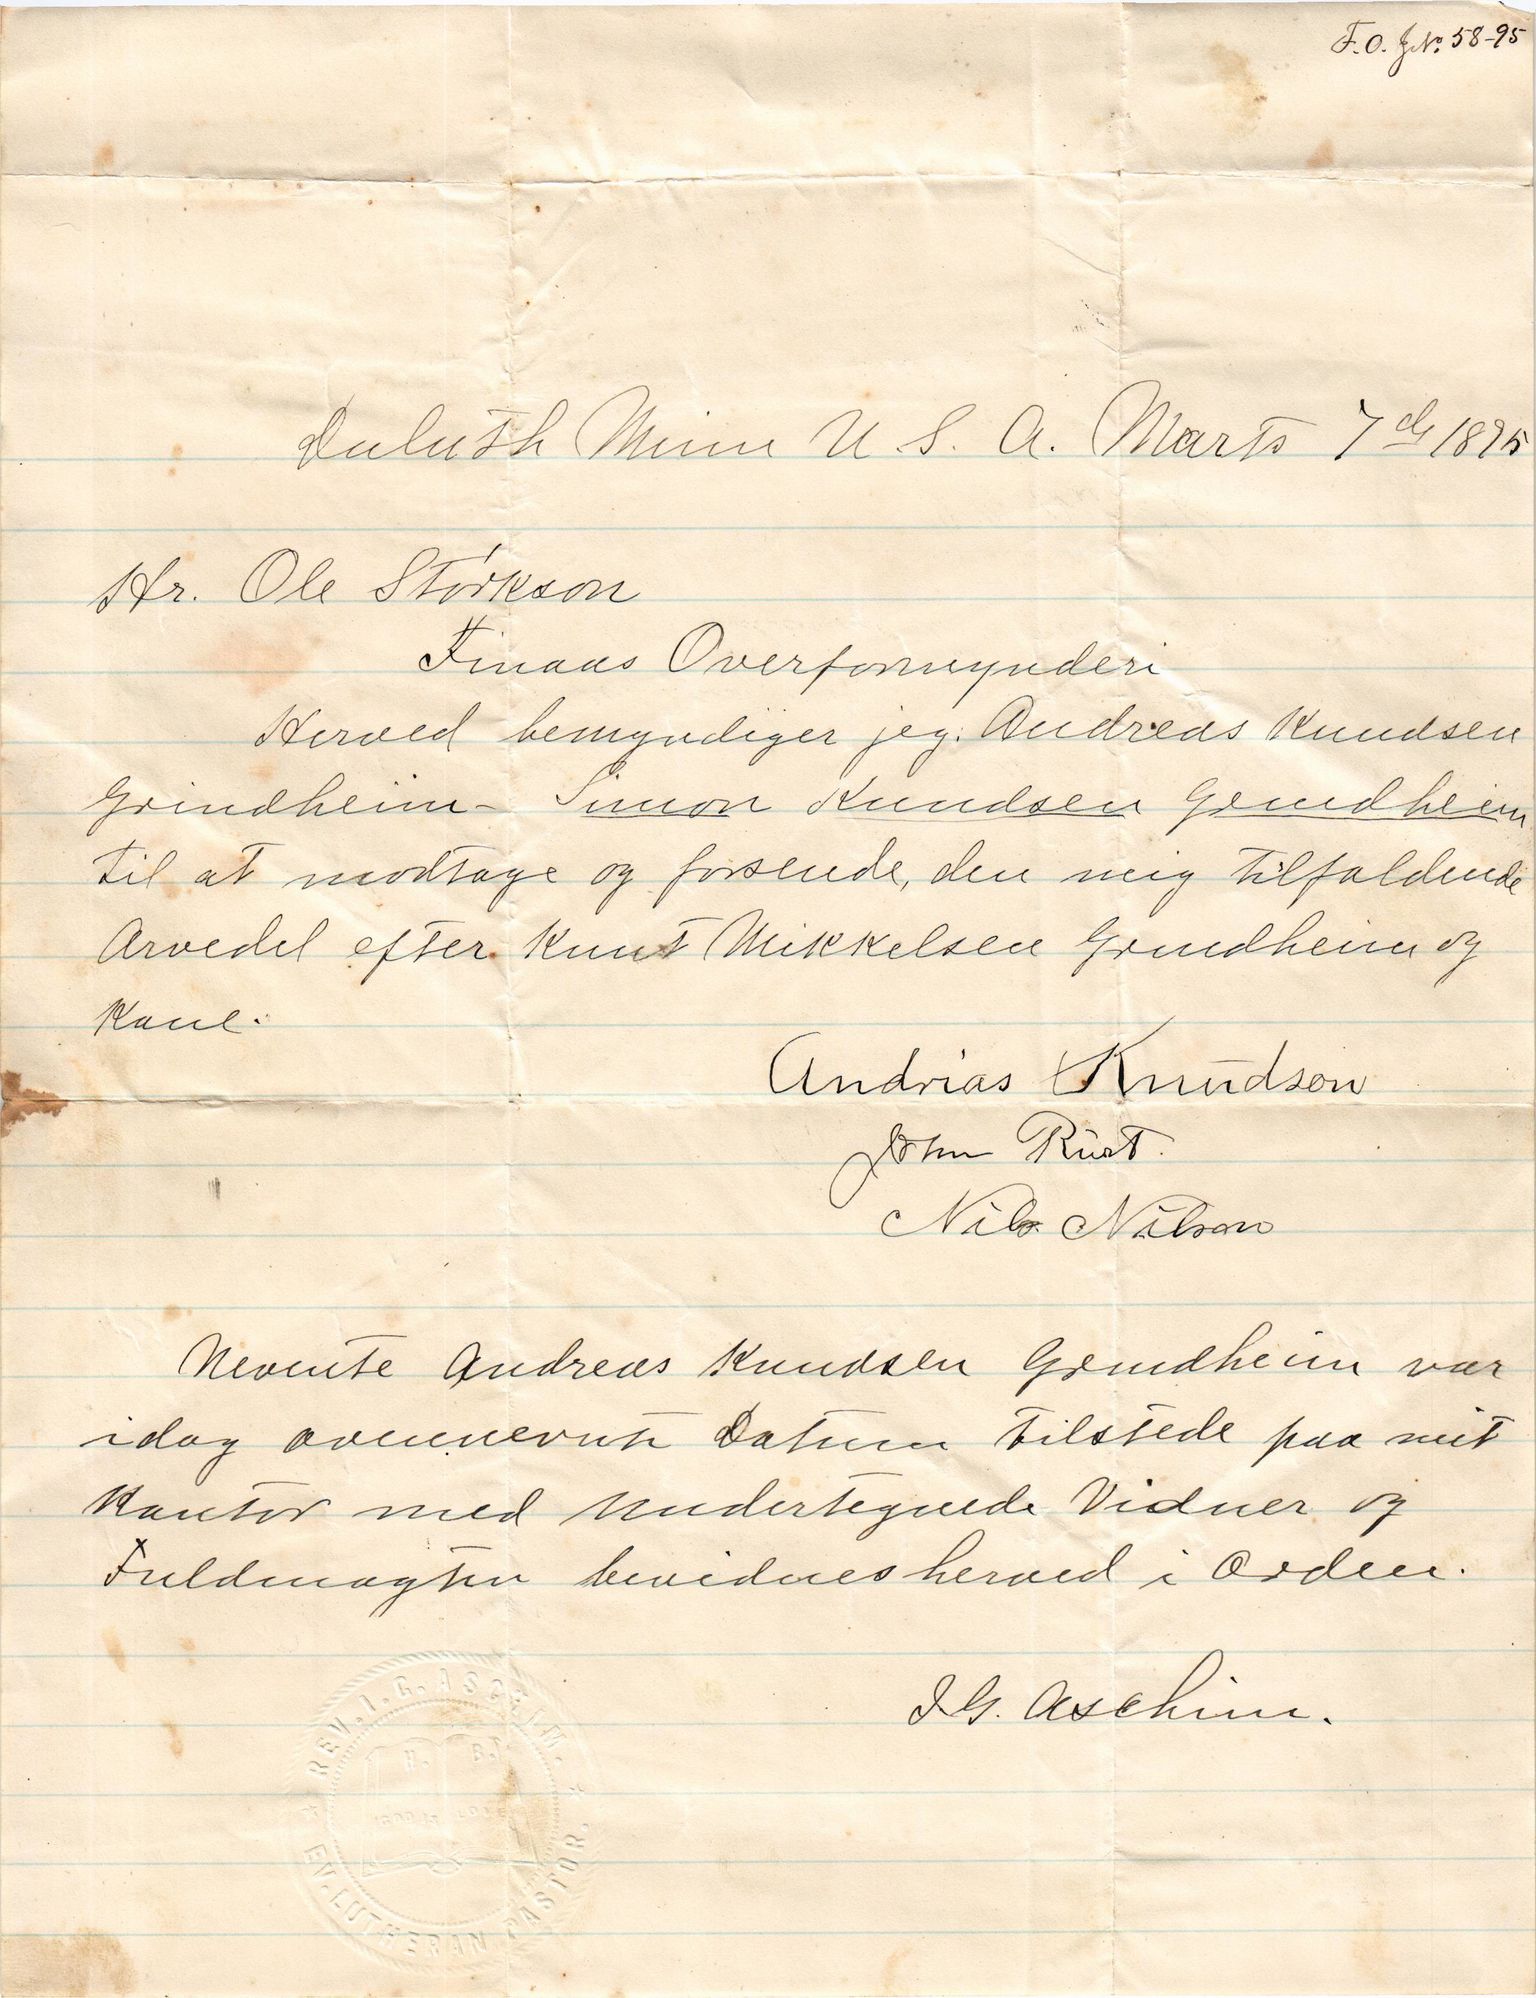 F.O. J.No. 58-95
Duluth Minn U. S. A. Marts 7de 1895
Hr. Ole Størkson
Finaas Overformynderi
Herved bemyndiger jeg. Andreas Knudsen
Grindheim - Simon Knudsen Grindheim
til at modtage og forsende, den mig tilfaldende
Arvedel efter Knut Mikkelsen Grindheim og
Kone.
Andrias Knudson
John
Nils Nilson
Nevnte Andreas Knudsen Grindheim var
idag ovennevnte Datum tilstede paa mit
Kontor med undertegnede Vidner og
Fuldmagten bevidnes herved i Orden.
I.G. Aschim.
REV. I. G. ASCHIM.
H. B.
GOD IS LOVE
EV. LUTHERAN PASTOR.